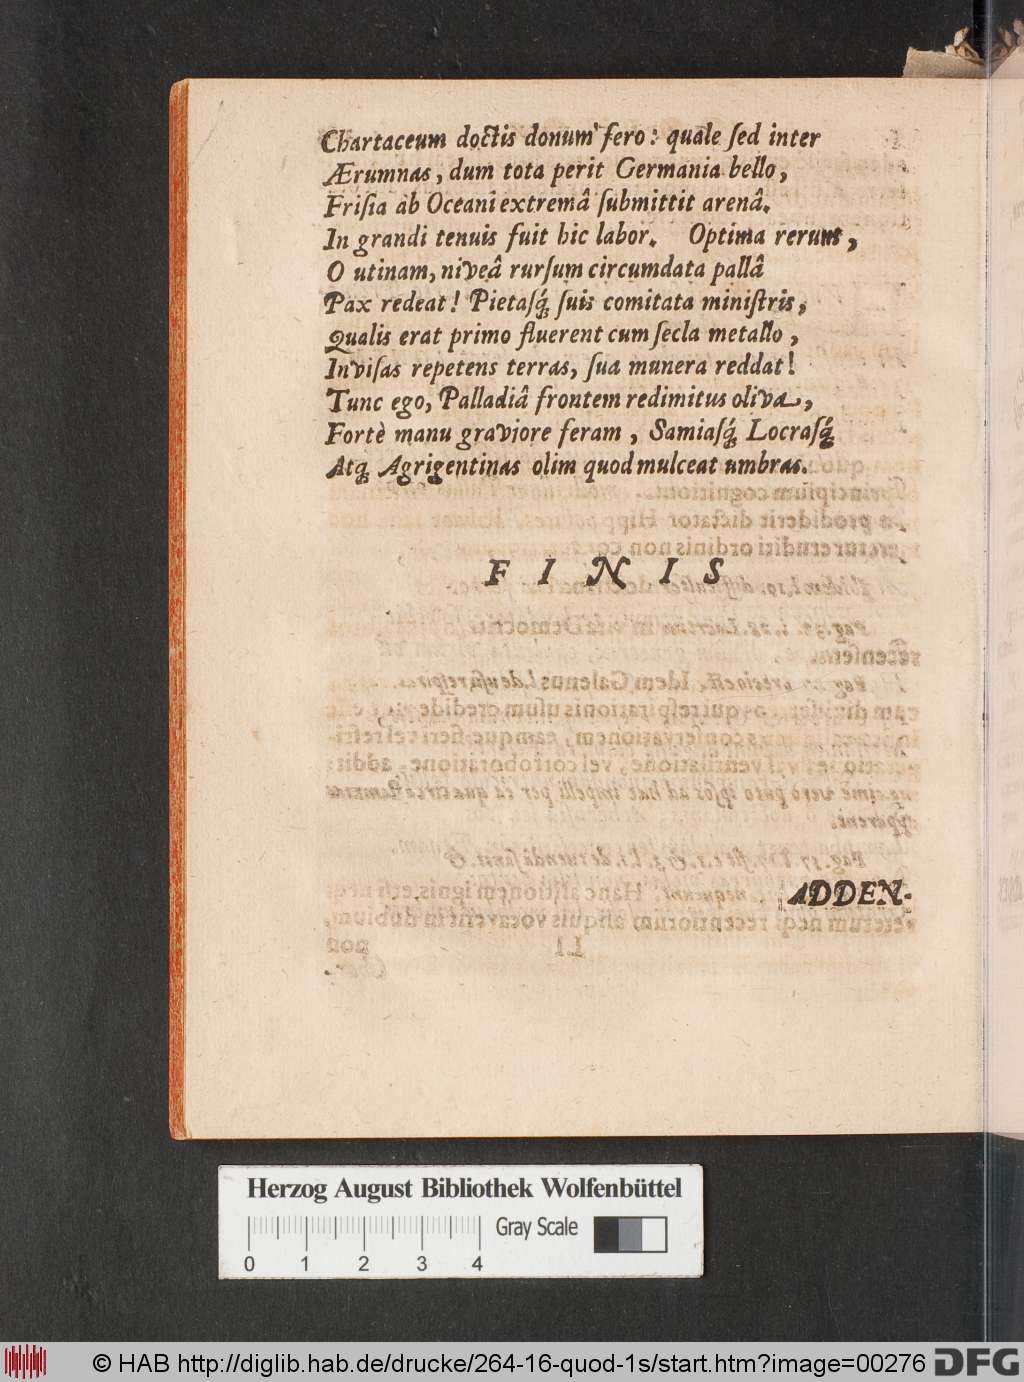 Chartaceum doctis donum fero: quale ſed inter
Ærumnas, dum tota perit Germania bello,
Friſia ab Oceani extremâ ſubmittit arenâ.
In grandi tenuis fuit hic labor. Optima rerum,
O utinam, niveâ rurſum circumdata pallâ
Pax redeat! Pietaſq́; ſuis comitata miniſtris,
Qualis erat primo fluerent cum ſecla metallo,
Inviſas repetens terras, ſua munera reddat!
Tunc ego, Palladiâ frontem redimitus oliva,
Fortè manu graviore feram, Samiaſq́; Locraſq́;
Atq; Agrigentinas olim quod mulceat umbras.
FINIS
ADDEN-
Herzog August Bibliothek Wolfenbüttel
Gray Scale
0 1 2 3 4
© HAB http://diglib.hab.de/drucke/264-16-quod-1s/start.htm?image=00276
DFG